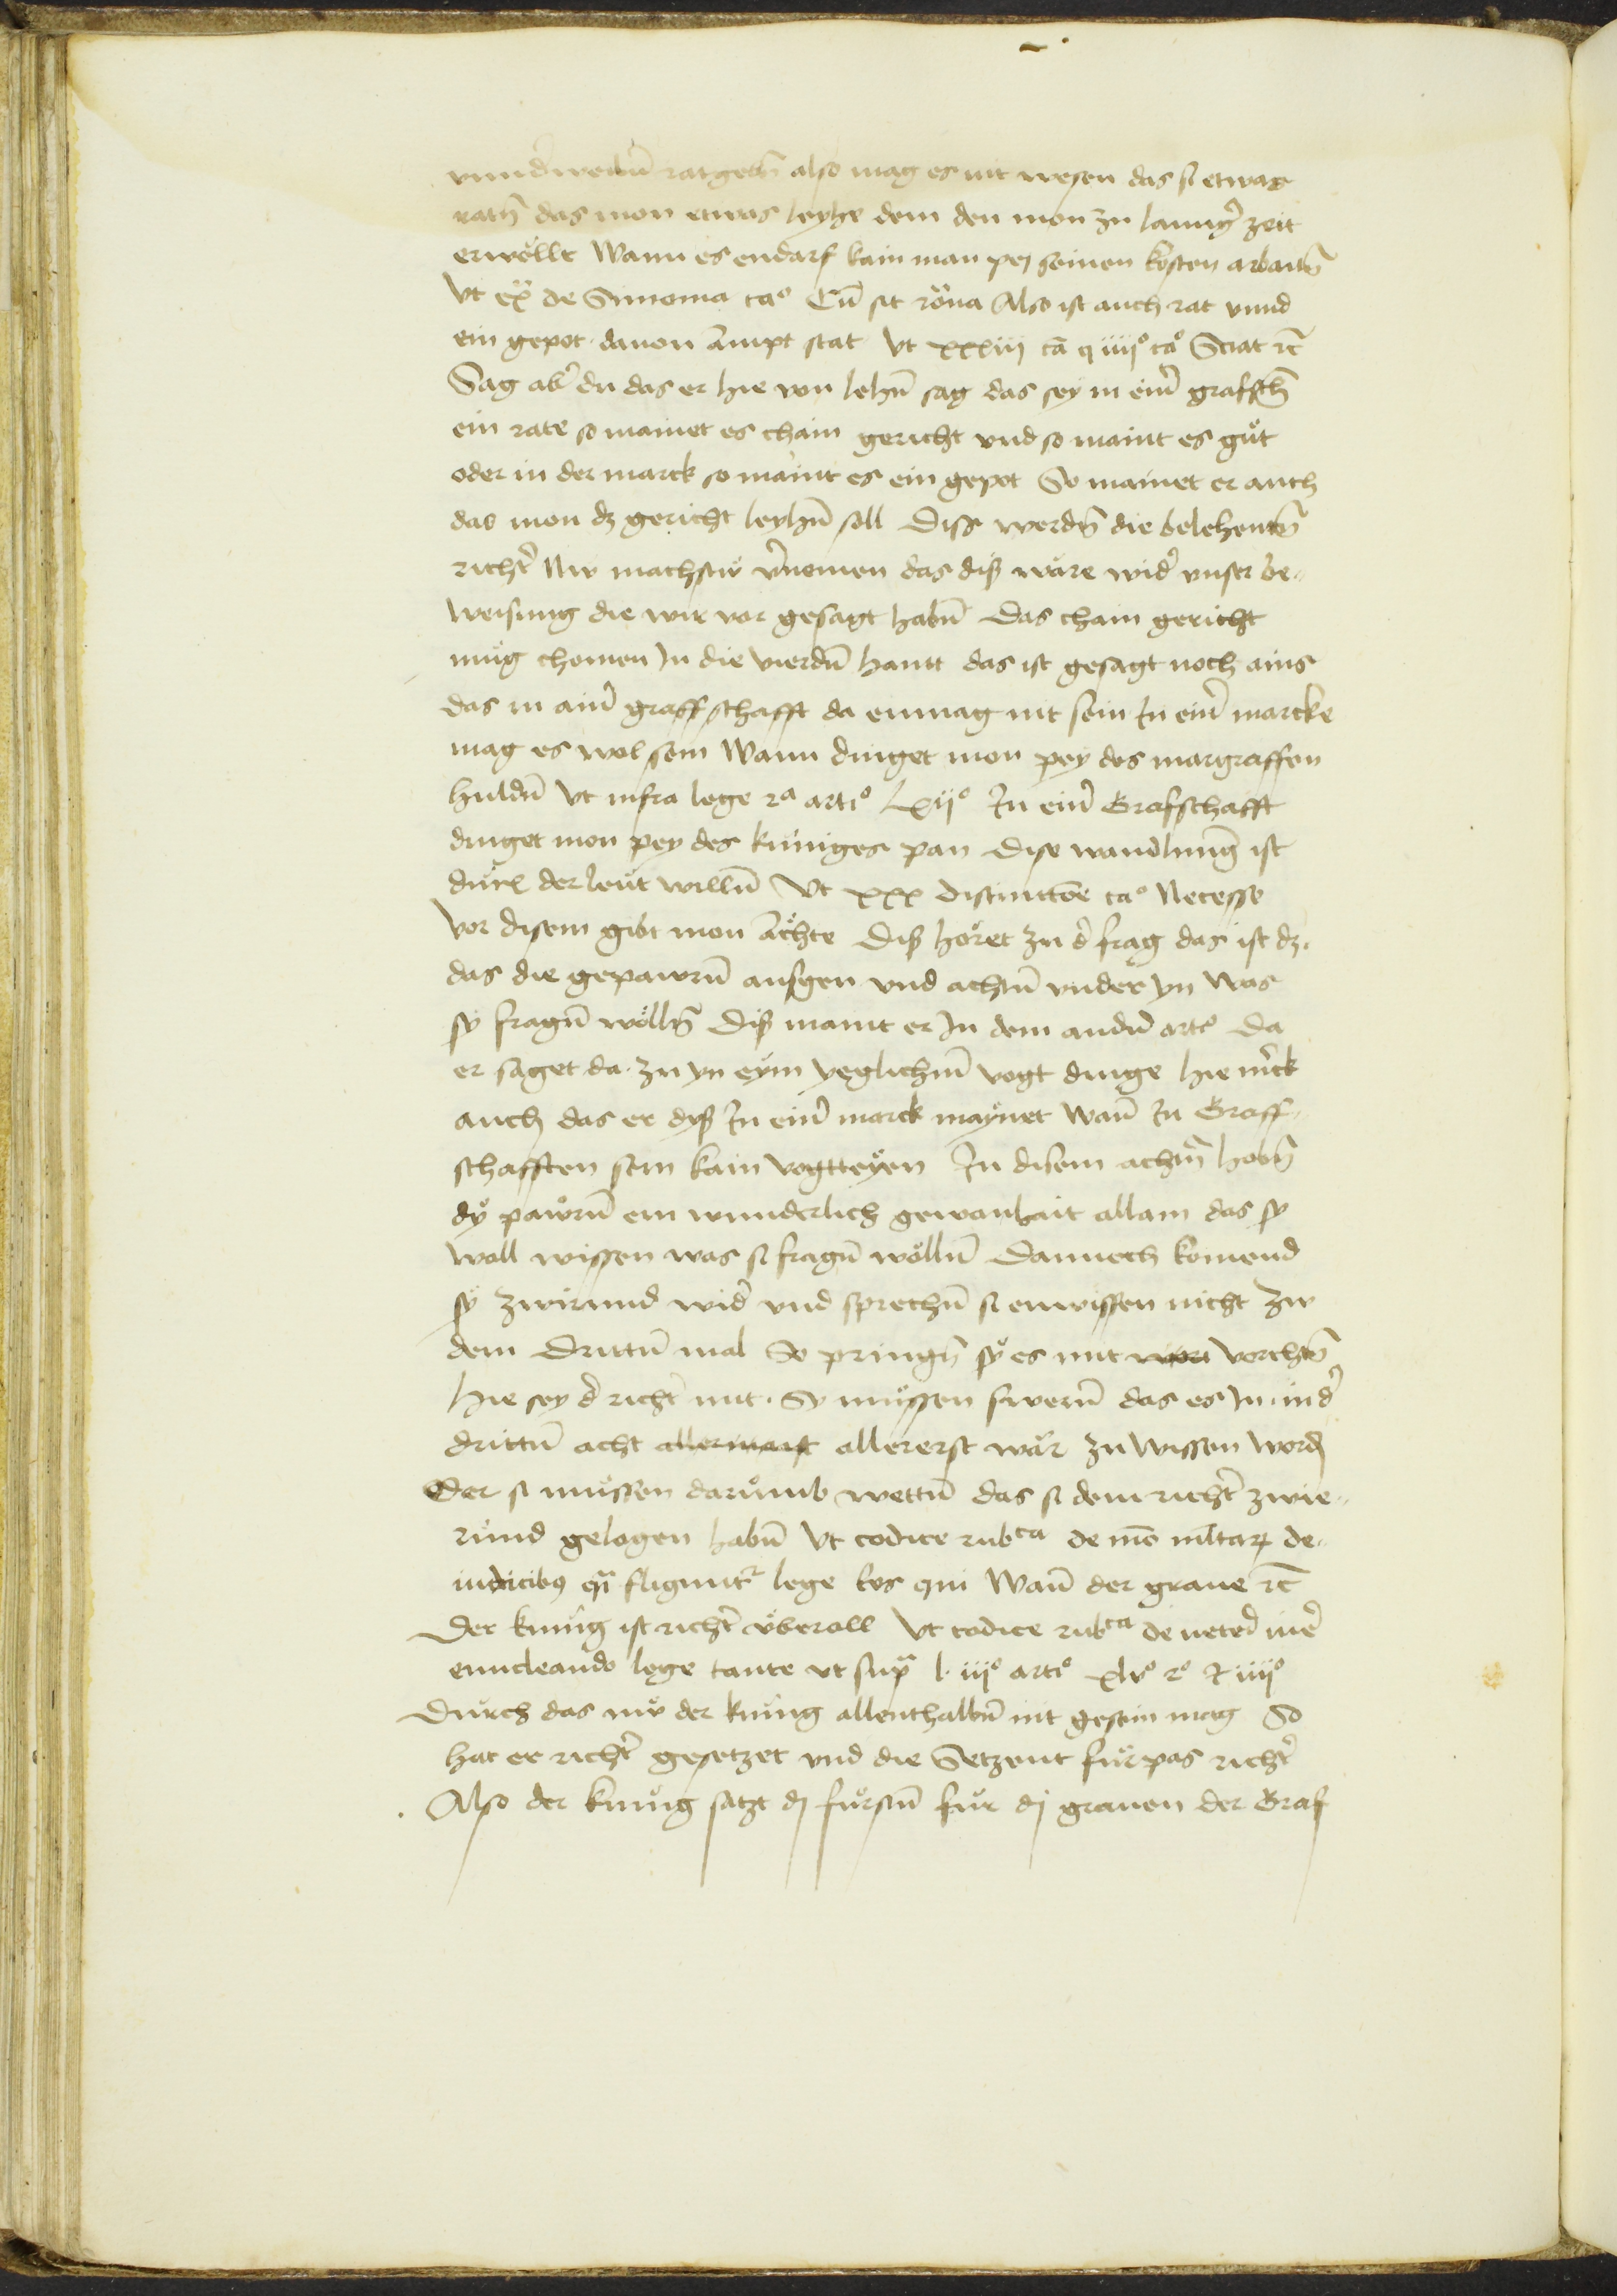 vnnd̕weiln̄ ratgebn̄ also mag es nit wesen das si etwas
ratn̄ das mon etwas leyhe dem den mon zu lanng̕ zeit
erwöllt Wann es endarf kain man pej seinen kosten arbaitn̄
Vt ex̄ de Simonia caº Cū sit rōna Also ist auch rat vnnd
ein gepot dauon Ampt stat Vt xxxiij cā q iiijº caº Sciat rc̄
Sag ab̕ du das er hie von lehn̄ sag das sey in ein̕ graffsch̄
ein rate so mainet es chain gericht vnd so maint es gůt
oder in der marck so maint es ein gepot So mainet er auch
das mon dz gericht leyhn̄ soll Diss werdn̄ die belehentn̄
richt̕ Nw machstw v̕nemen das diß wäre wid̕ vnser be-
weisung die wir vor gesagt habn̄ Das chain gericht
müg chomen In die vierdn̄ hantt das ist gesagt noch ains
das in ain̕ graffschafft da enmag nit sein In ein̕ marcke
mag es wol sein Wann dinget mon pey des margraffen
huldn̄ Vt infra lege 2ª artiº Lxijº In ein̕ Grafschafft
dinget mon pey des küniges pan Dise wandlung ist
durch der leut willn̄ Vt xxx distinctōe caº Necesse
Vor disem gibt mon Achte Diß höret zu d̕ frag das ist dz
das die gepawrn̄ ausgen vnd achtn̄ vnder yn was
sy fragn̄ wölln̄ Diß maint er In dem andn̄ artº Da
er saget da zu yn eym yeglichm̄ vogt dinge hie m̕ck
auch das er dyß In ein̕ marck maynet wan̄ In Graff-
schafften sein kain vogtteyen In disem achtn̄ habn̄
dy pawrn̄ ein wunderlich gewanhait allain das sy
woll wissen was si fragn̄ wölln̄ Dannoch komend
sy zwirund wid̕ vnd sprechn̄ si enwissen nicht zw
dem Drittn̄ mal So pringn̄ sy es mit vorchtn̄
hie sey d̕ richt̕ mit. Sy müssen swern̄ das es In in d̕
drittn̄ acht allermaist allererst wär zu wissen word
Oder si müssen darumb wettn̄ das si dem richt̕ zwie-
rund gelogen habn̄ Vt codice rubᶜᵃ de
lege eos qui Wan̄ der graue rc̄
Der künig ist richt̕ überall Vt codice rubᶜᵃ de vete̕ iu̕e
enucleando lege tante vt sup̄ l. iijº artiº xlvº 2º & iiijº
Durch das nw der künig allenthalbn̄ nit gesein mag So
hat er richt̕ gesetzet vnd die Setzent fürpas richt̕
Also der künig satzt dj fürstn̄ für dj grauen der Graf